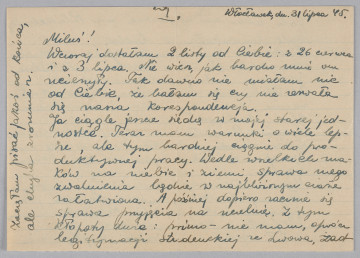 Włocławek, dn. 31 lipca 45.
Miluś!
Wczoraj dostałam 2 listy od Ciebie: z 26 czerwca
i z 3 lipca. Nie wiesz jak bardzo mnie on
ucieszyły. Tak dawno nie miałam nic
od Ciebie, że bałam się czy nie zerwała
się nasza korespondencja.
Ja ciągle jeszcze siedzę w mojej starej jed-
nostce. Teraz mam warunki o wiele lep-
sze, ale tym bardziej ciągnie do pro-
duktywnej pracy. Wedle wszelkich zna-
ków na niebie i ziemi sprawa mego
zwolnienia będzie w najbliższym czasie
załatwiona. A później dopiero zacznie się
sprawa przyjęcia na uczelnię. Z tym
kłopoty dużo: primo- nie mam, oprócz
legitymacji studenckiej ze Lwowa, żad-
Zaczęłam pisać jakoś od końca,
ale chyba zrozumiesz.